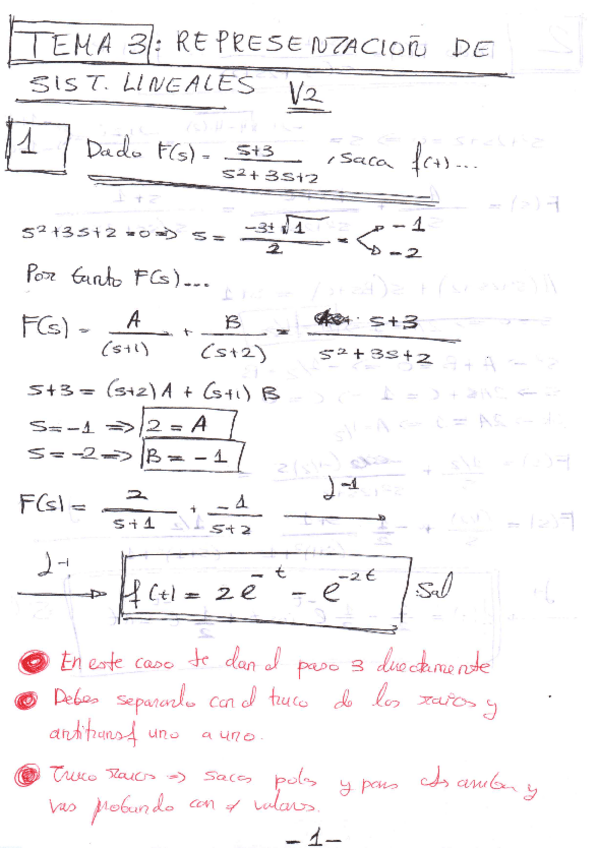 TEMA 3: REPRESENTACION DE
SIST. LINEALES V2
1 Dado F(s) = (s+3)/(s²+3s+2), saca f(t)...
s²+3s+2=0 => s = (-3±√1)/2 = -1
-2
Por tanto F(s)...
F(s) = A/(s+1) + B/(s+2) = s+3/(s²+3s+2)
s+3 = (s+2)A + (s+1)B
s=-1 => 2 = A
s=-2 => B = -1
F(s) = 2/(s+1) + -1/(s+2) L⁻¹ →
L⁻¹ → f(t) = 2e^-t - e^-2t Sol
En este caso te dan el paso 3 directamente
Debes separarlo con el truco de las raíces y
antitransf uno a uno.
Truco raices => sacas polos y pones arriba y
vas probando con valores.
-1-